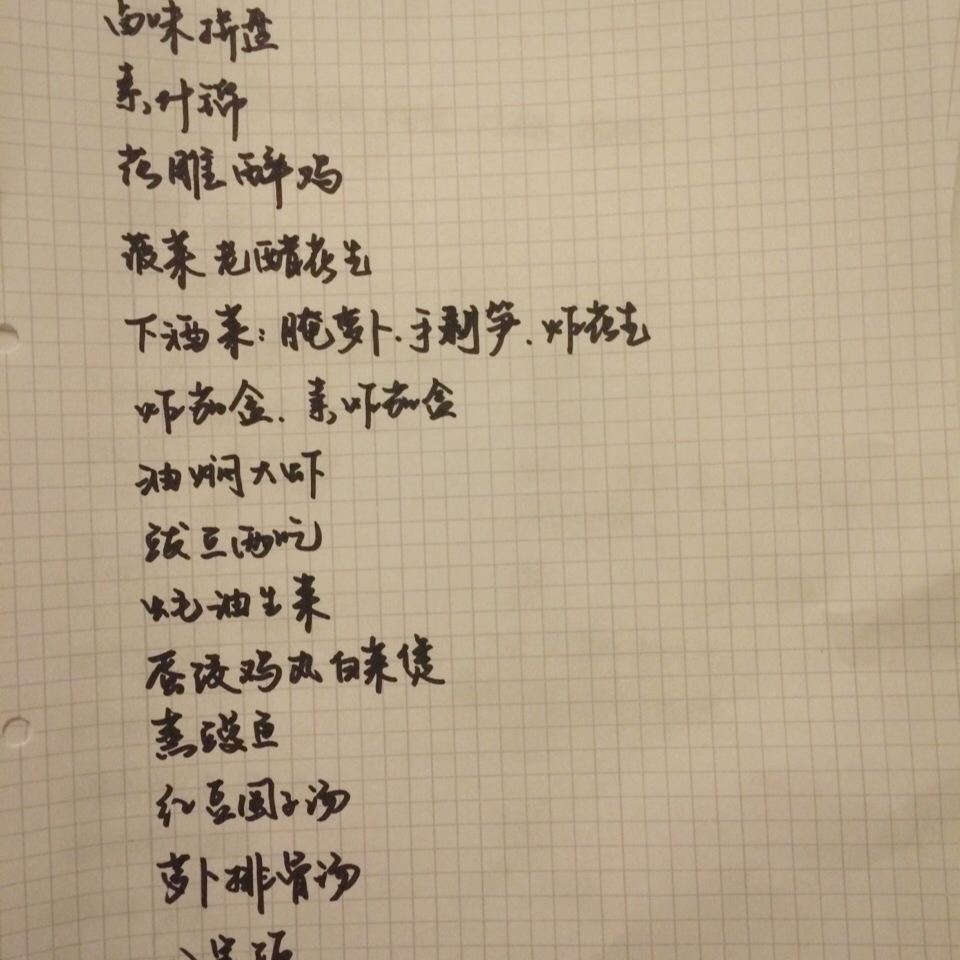 卤味拼盘
素什锦
花雕醉鸡
菠菜老醋花生
下酒菜:腌萝卜.手剥笋.炸花生
炸茄盒.素炸茄盒
油焖大虾
豆两吃
蚝油生菜
蛋饺鸡丸白菜煲
蒸鱼
红豆圆子汤
萝卜排骨汤